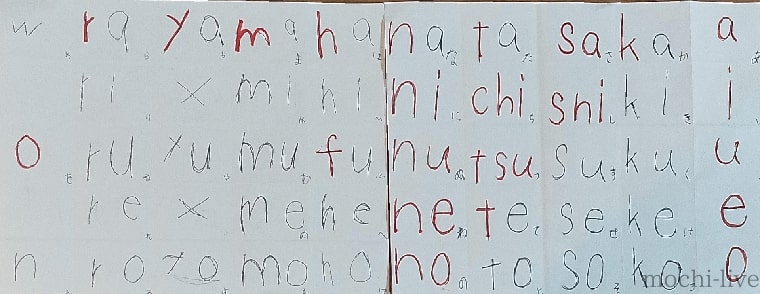 w ra ya ma ha na ta sa ka a
ri × mi hi ni chi shi ki i
o ru yu mu fu nu tsu su ku u
re × me he ne te se ke e
n ro yo mo ho no to so ko o
mochi-live